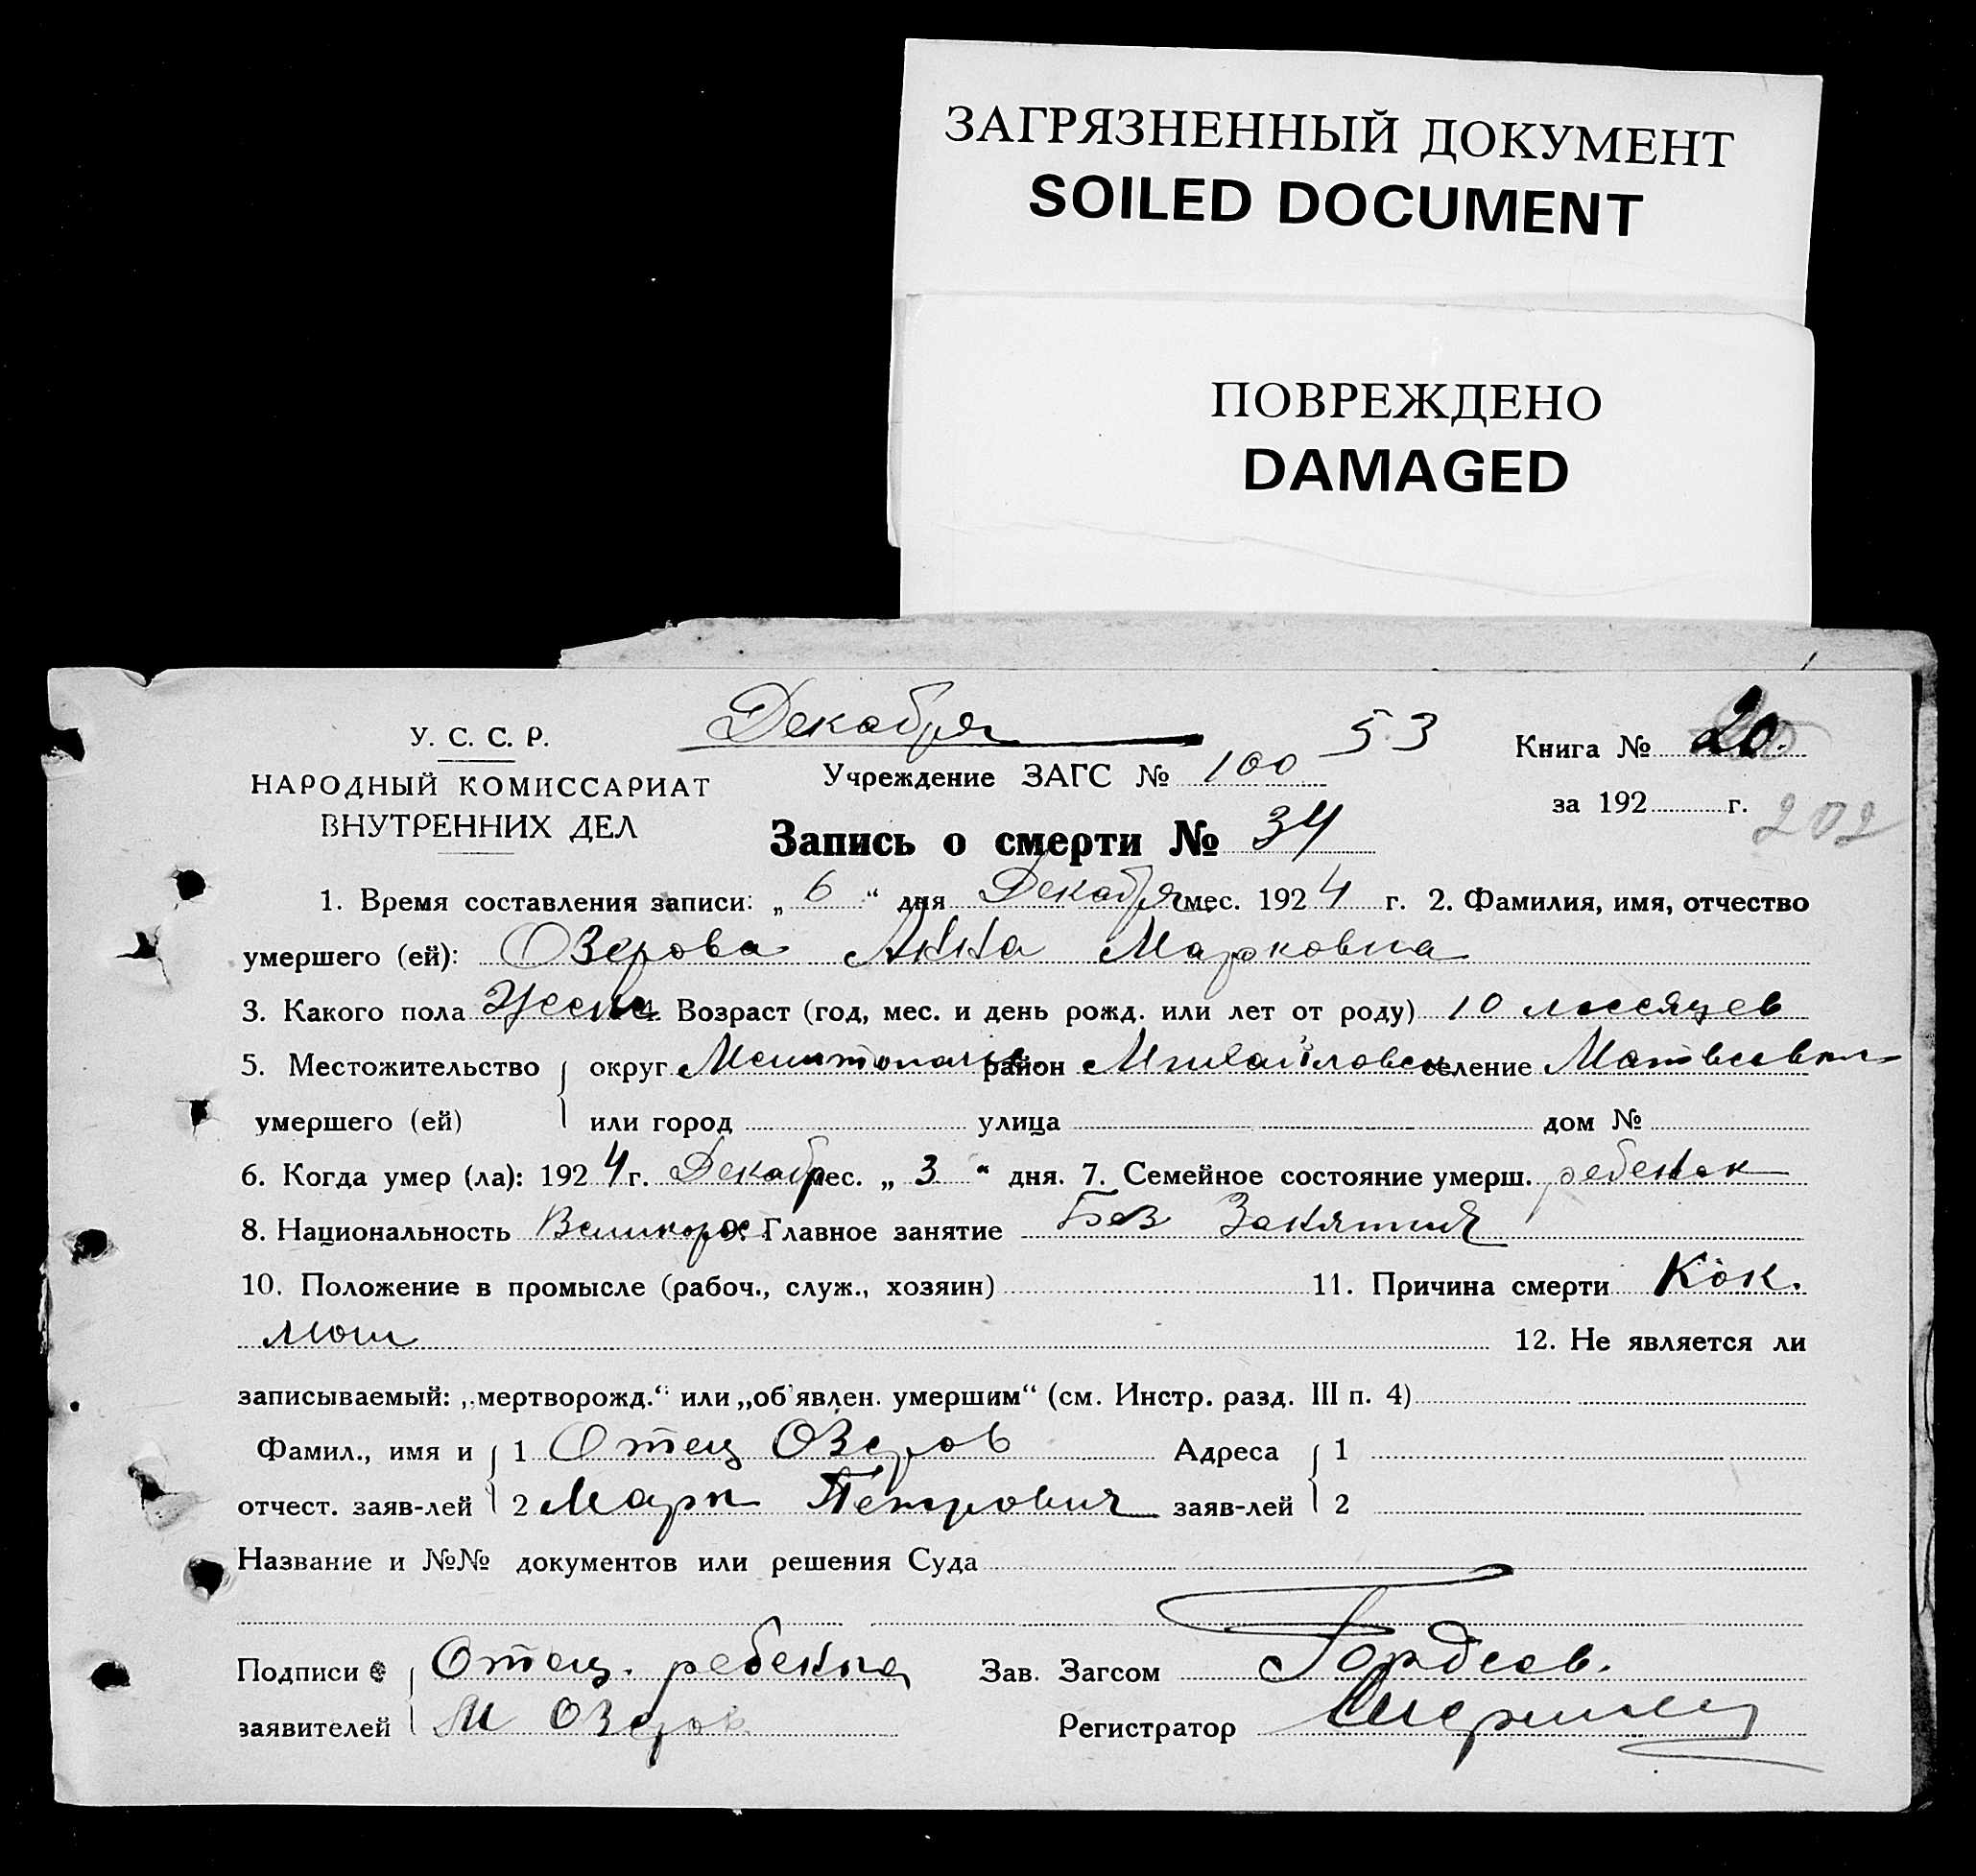 ЗАГРЯЗНЕННЫЙ ДОКУМЕНТ
SOILED DOCUMENT
ПОВРЕЖДЕНО
DAMAGED
У. С. С. Р.
НАРОДНЫЙ КОМИССАРИАТ
ВНУТРЕННИХ ДЕЛ
Декабря
53
Учреждение ЗАГС № 100
Книга № 20.
за 192 г.
202
Запись о смерти № 34
1. Время составления записи: „ 6 “ дня Декабря мес. 1924 г. 2. Фамилия, имя, отчество
умершего (ей): Озерова Анна Марковна
3. Какого пола 4. Возраст (год, мес. и день рожд. или лет от роду) 10 месяцев
5. Местожительство округ район Михайловск селение
умершего (ей) или город улица дом №
6. Когда умер (ла): 1924 г. Декабр мес. „ 3 “ дня. 7. Семейное состояние умерш. ребенок
8. Национальность Великорос 9. Главное занятие Без Занятия
10. Положение в промысле (рабоч., служ., хозяин) 11. Причина смерти Кок.
люш 12. Не является ли
записываемый: „мертворожд.“ или „об'явлен. умершим“ (см. Инстр. разд. III п. 4)
Фамил., имя и 1 Отец Озеров Адреса 1
отчест. заяв-лей 2 Марк Петрович заяв-лей 2
Название и №№ документов или решения Суда
Подписи Отец. ребенка Зав. Загсом Гордеев.
заявителей М Озеров Регистратор